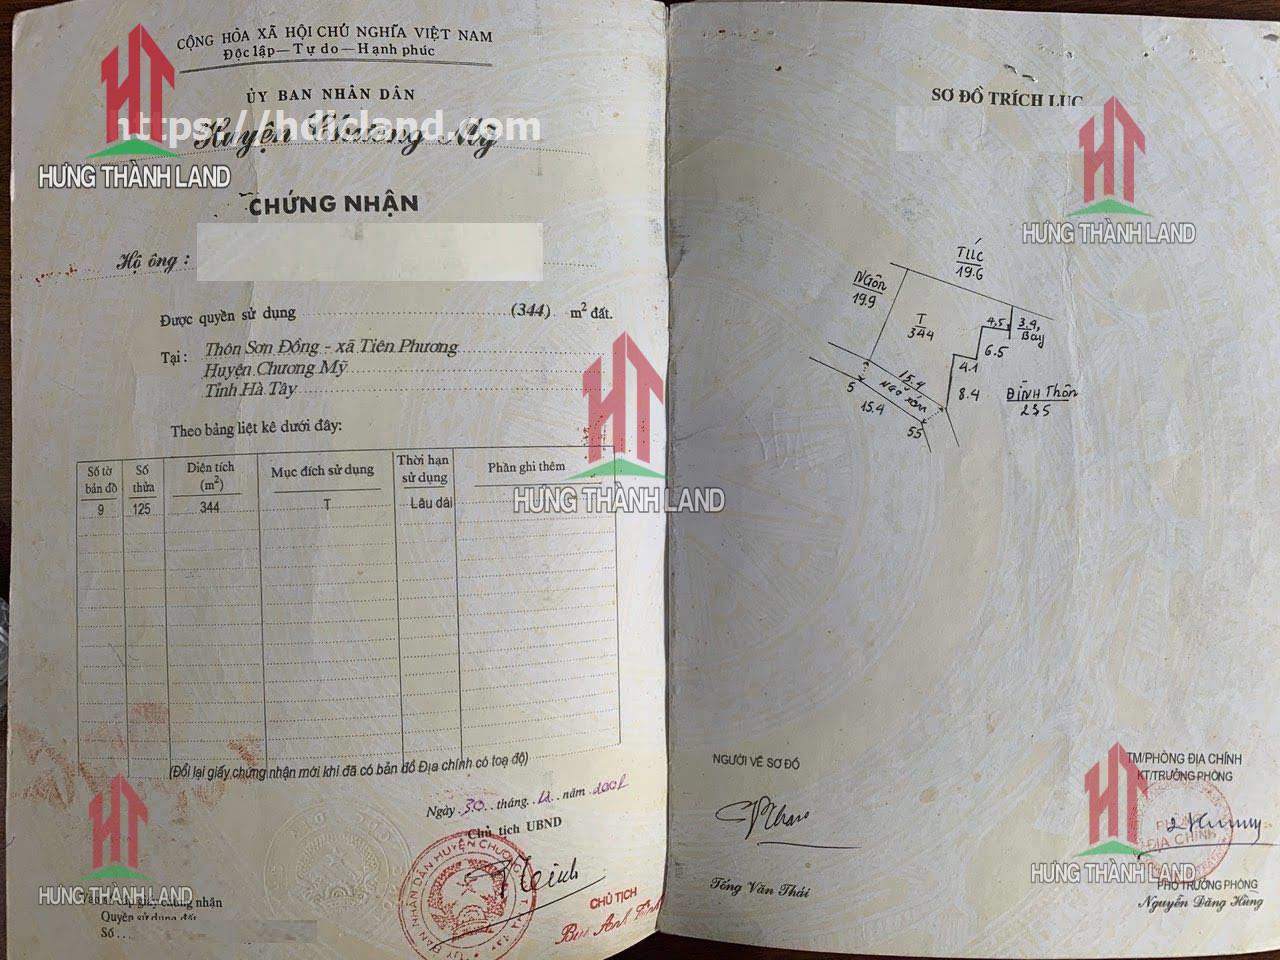 CỘNG HÒA XÃ HỘI CHỦ NGHĨA VIỆT NAM
Độc lập—Tự do—Hạnh phúc
ỦY BAN NHÂN DÂN
Huyện Chương Mỹ
https://hdicland.com
HƯNG THÀNH LAND
CHỨNG NHẬN
Hộ ông :
Được quyền sử dụng (344) m² đất.
Tại : Thôn Sơn Đồng - xã Tiên Phương
Huyện Chương Mỹ
Tỉnh Hà Tây
Theo bảng liệt kê dưới đây:
Số tờ bản đồ Số thửa Diện tích (m²) Mục đích sử dụng Thời hạn sử dụng Phần ghi thêm
9 125 344 T Lâu dài
HƯNG THÀNH LAND
(Đổi lại giấy chứng nhận mới khi đã có bản đồ Địa chính có toạ độ)
Ngày 30 tháng 12 năm 2001
Chủ tịch UBND
CHỦ TỊCH
HƯNG THÀNH LAND
giấy chứng nhận
Quyền sử dụng đất
Số
SƠ ĐỒ TRÍCH LỤC
HƯNG THÀNH LAND
NGÔN
19.9
TỨC
19.6
T
344
4,5
3.9
Bảy
6.5
4.1
8.4
ĐÌNH Thôn
235
15.4
NGÕ XÓM
5
15.4
55
NGƯỜI VẼ SƠ ĐỒ
Tống Văn Thái
TM/PHÒNG ĐỊA CHÍNH
KT/TRƯỞNG PHÒNG
ĐỊA CHÍNH
HƯNG THÀNH LAND
PHÓ TRƯỞNG PHÒNG
Nguyễn Đăng Hùng